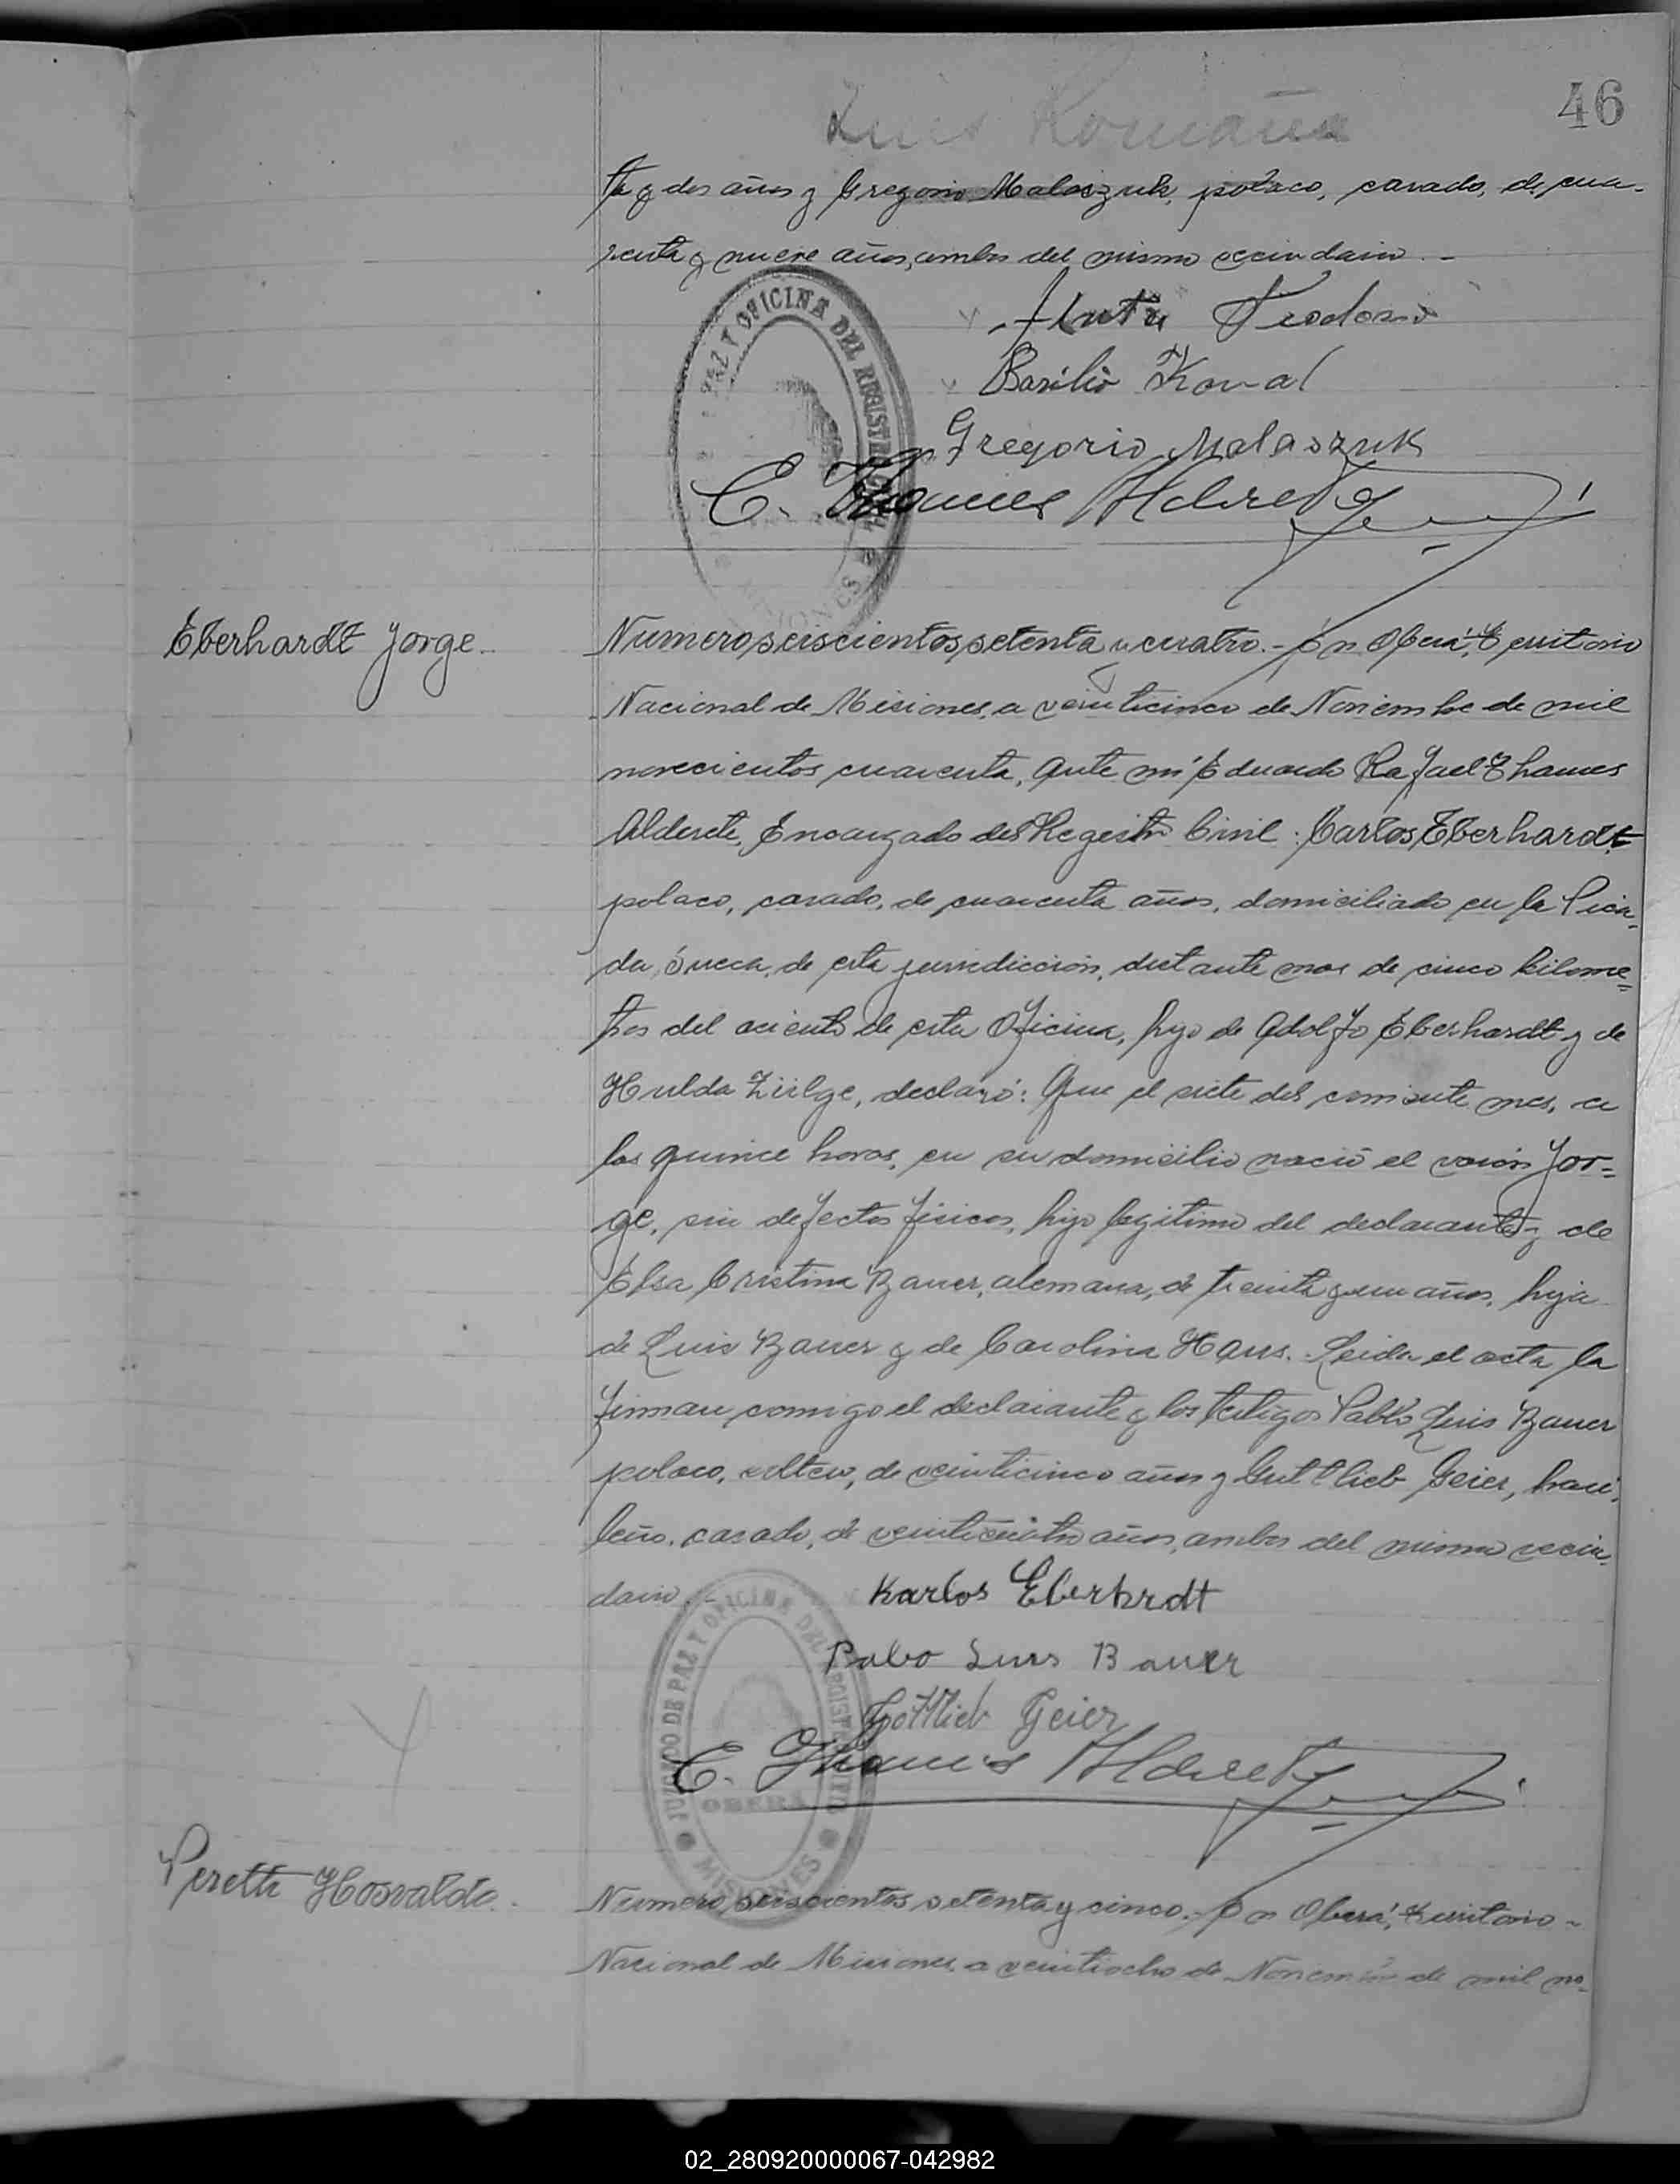 46
Luis Romaña
ta y dos años y Gregorio Malaszuk, polaco, casado, de cua-
renta y nueve años, ambos del mismo vecindario.-
Teodoro
Basilio Kowal
Gregorio Malaszuk
E. Thames Alderete
OFICINA DEL REGISTRO
MISIONES
Eberhardt Jorge.-
Numero seiscientos setenta y cuatro.- En Oberá, Territorio
Nacional de Misiones, a veinticinco de Noviembre de mil
novecientos cuarenta, ante mí Eduardo Rafael Thames
Alderete, Encargado del Registro Civil: Carlos Eberhardt,
polaco, casado, de cuarenta años, domiciliado en la Pica-
da Sueca, de esta jurisdicción, distante mas de cinco kilome=
tros del asiento de esta Oficina, hijo de Adolfo Eberhardt y de
Hulda Zülge, declaró: Que el siete del corriente mes, a
las quince horas, en su domicilio nació el varón Jor=
ge, sin defectos físicos, hijo legitimo del declarante y de
Elsa Cristina Bauer, alemana, de treinta y un años, hija
de Luis Bauer y de Carolina Haus. Leida el acta la
firman conmigo el declarante y los testigos Pablo Luis Bauer
polaco, soltero, de veinticinco años y Guttlieb Geier, brasi-
leño, casado, de veinticuatro años, ambos del mismo vecin-
dario.-
Karlos Eberhrdt
Pabo Luis Bauer
Gottlieb Geier
E. Thames Alderete
JUZGADO DE PAZ Y OFICINA DEL REGISTRO
OBERÁ
MISIONES
Peretti Hosvaldo.-
Numero seiscientos setenta y cinco.- En Oberá, Territorio-
Nacional de Misiones, a veintiocho de Noviembre de mil no-
02_280920000067-042982